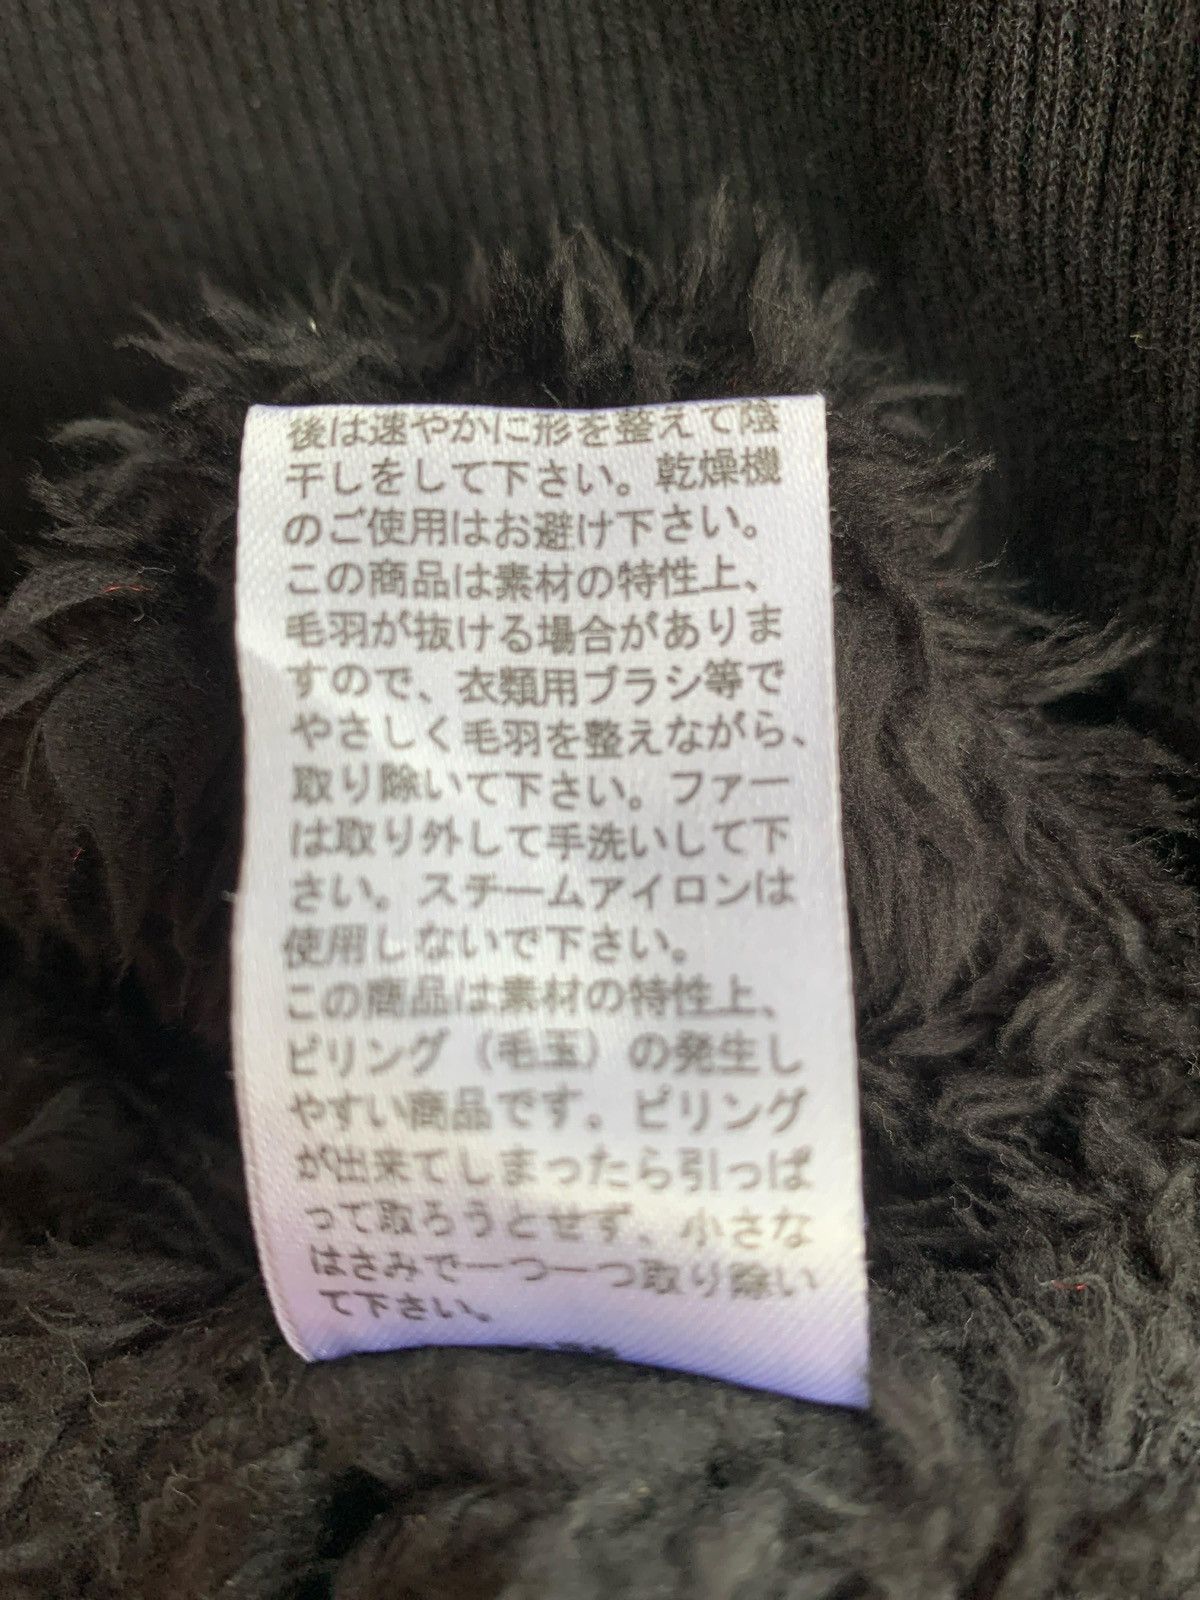 後は速やかに形を整えて陰
干しをして下さい。乾燥機
のご使用はお避け下さい。
この商品は素材の特性上、
毛羽が抜ける場合がありま
すので、衣類用ブラシ等で
やさしく毛羽を整えながら、
取り除いて下さい。ファー
は取り外して手洗いして下
さい。スチームアイロンは
使用しないで下さい。
この商品は素材の特性上、
ピリング（毛玉）の発生し
やすい商品です。ピリング
が出来てしまったら引っぱ
って取ろうとせず、小さな
はさみで一つ一つ取り除い
て下さい。